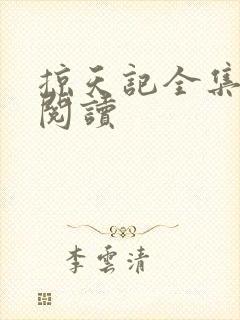 掠天記全集
閱讀
李雲清